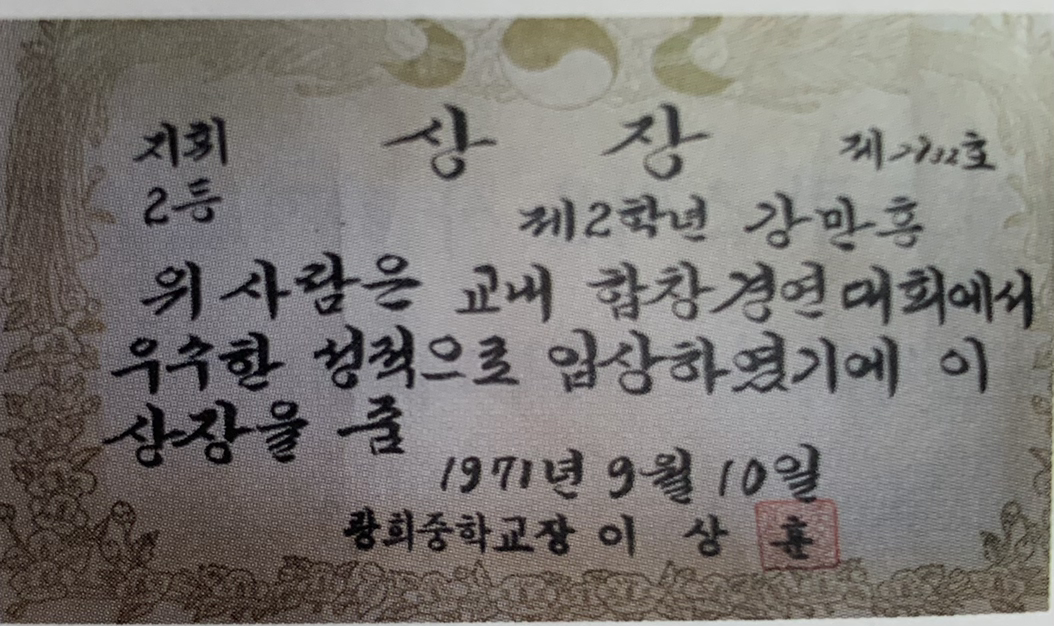 지휘 상장 제2932호
2등
제2학년 강만흥
위 사람은 교내 합창경연대회에서
우수한 성적으로 입상하였기에 이
상장을 줌
1971년 9월 10일
광희중학교장 이 상 훈